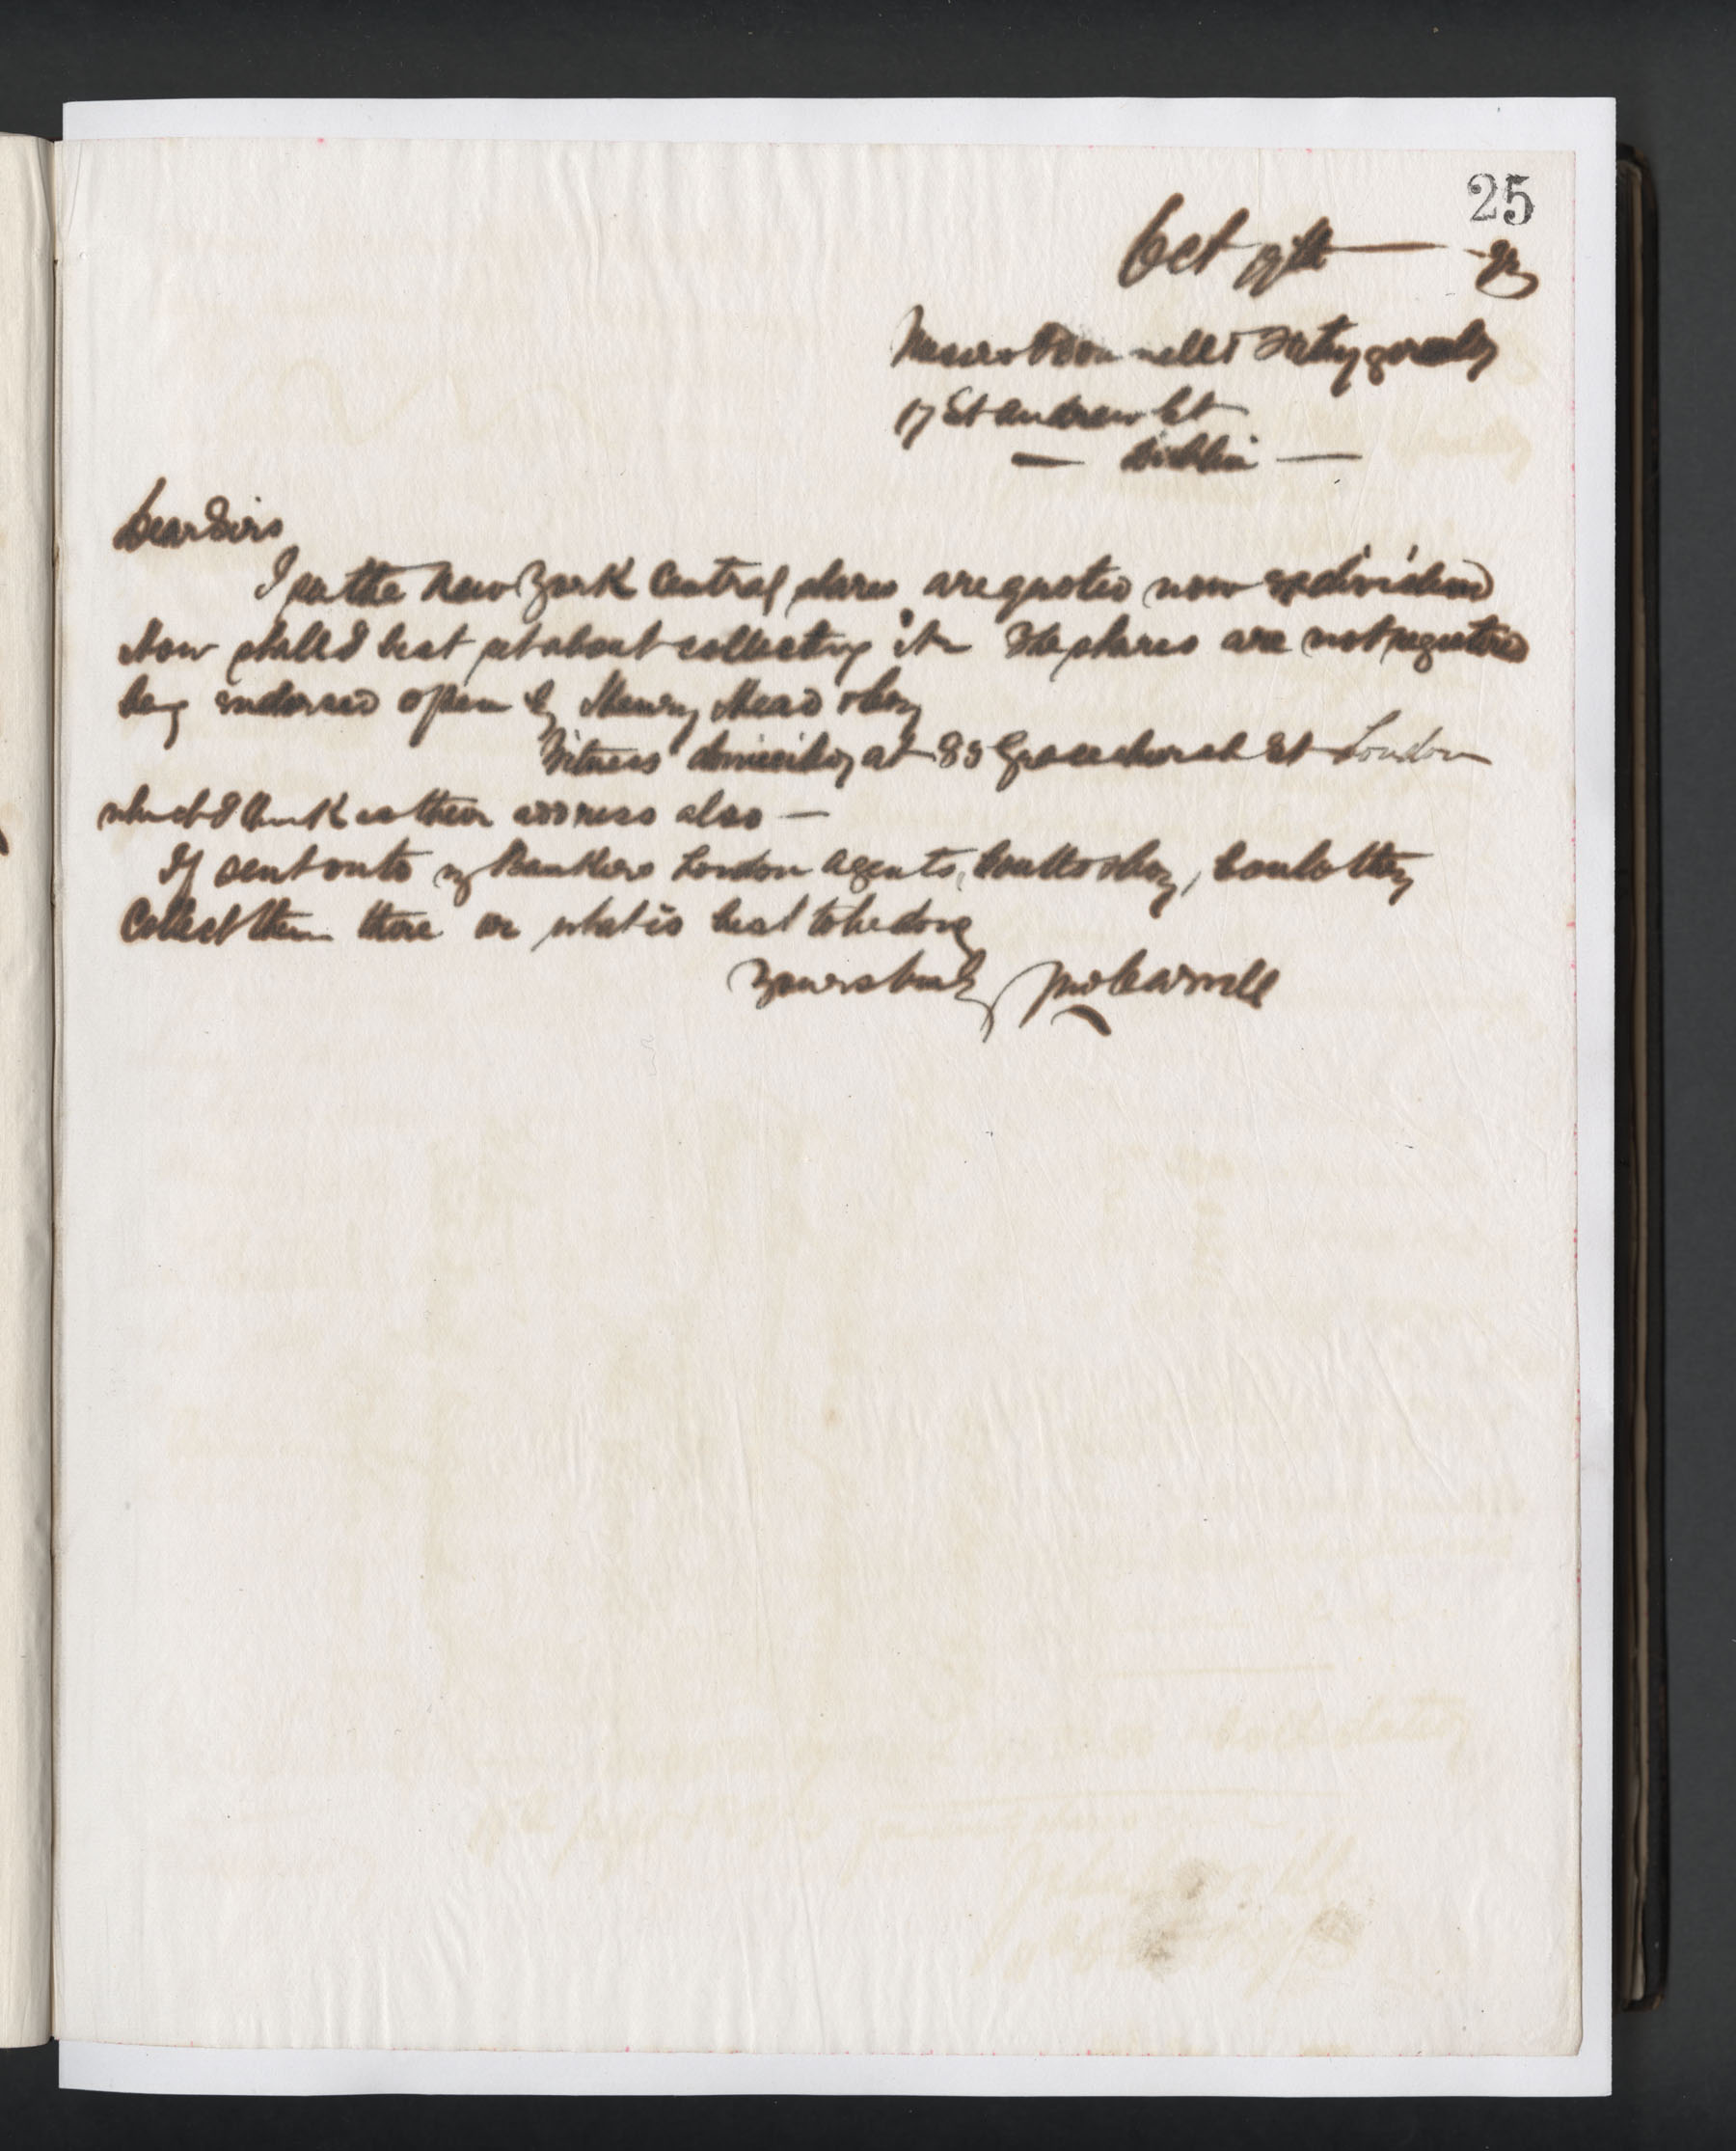 25
Oct 19th —
Messrs O'Donnell & Fitzgerald
17 St Andrew St
— Dublin —
Dear Sirs
I see the New York Central shares are quoted now ex dividend
How shall I best set about collecting it. The shares are not registered
being endorsed open by Henry Head & Coy
Witness domiciled at 83 Gracechurch St London
which I think is their address also —
If sent on to my Bankers London Agents, Coutts & Coy, could they
collect them there or what is best to be done
Yours truly Jno Carroll